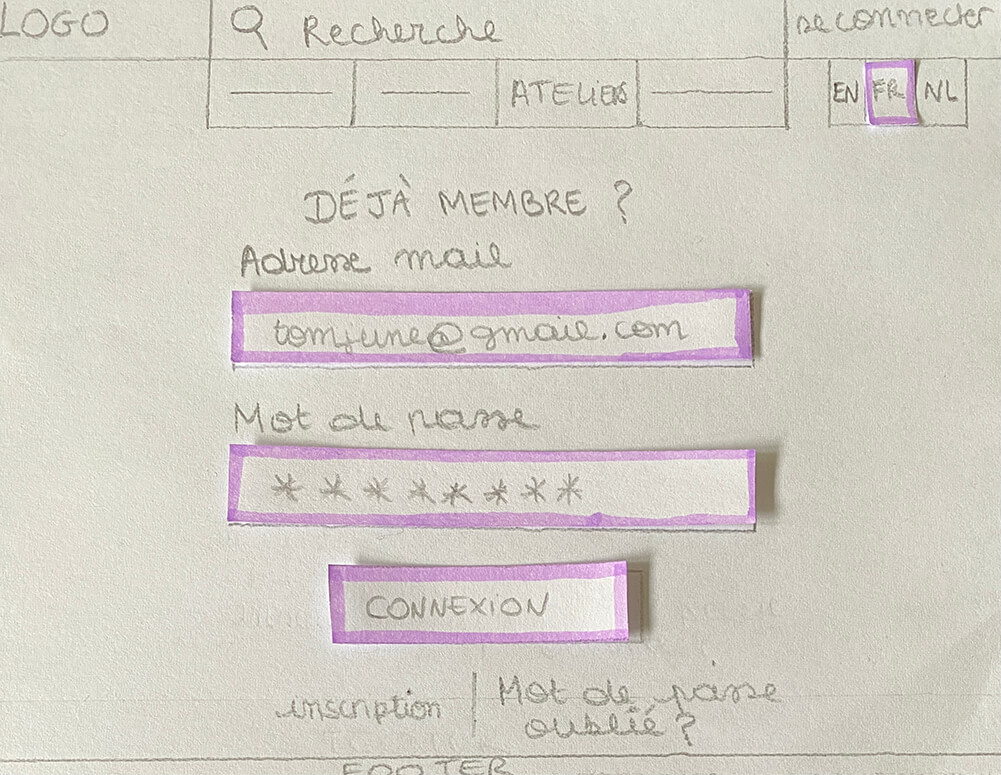 LOGO
Recherche
se connecter
ATELIERS
EN FR NL
DÉJÀ MEMBRE ?
Adresse mail
tomjune@gmail.com
Mot de passe
********
CONNEXION
inscription | Mot de passe
oublié ?
FOOTER